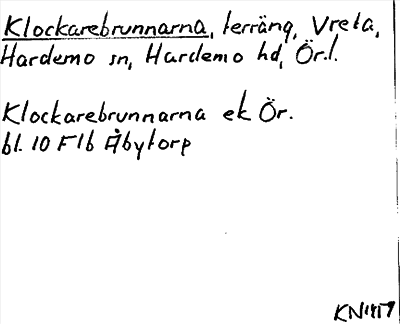 Klockarebrunnarna, terräng, Vreta,
Hardemo sn, Hardemo hd, Ör.l.
Klockarebrunnarna ek Ör.
bl. 10 F1b Åbytorp